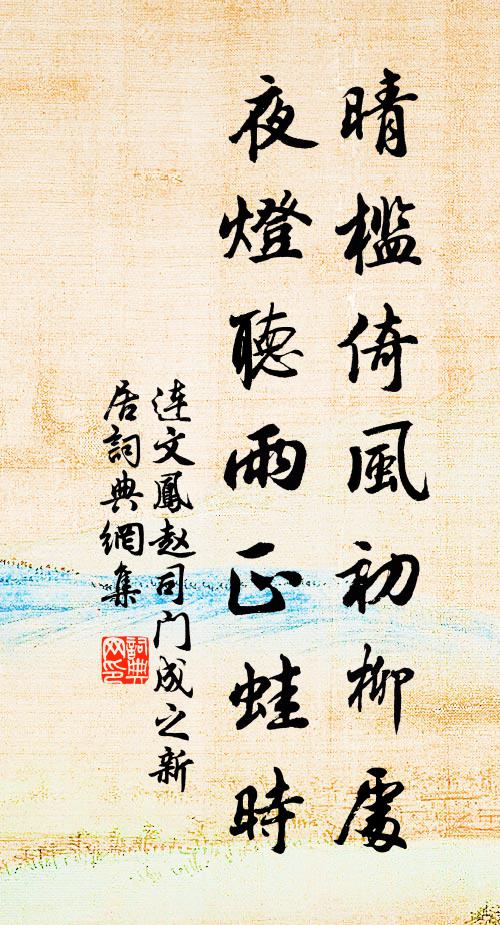 晴檻倚風初柳處
夜燈聽雨正蛙時
连文鳳赵司门成之新
居詞典網集
詞典網印